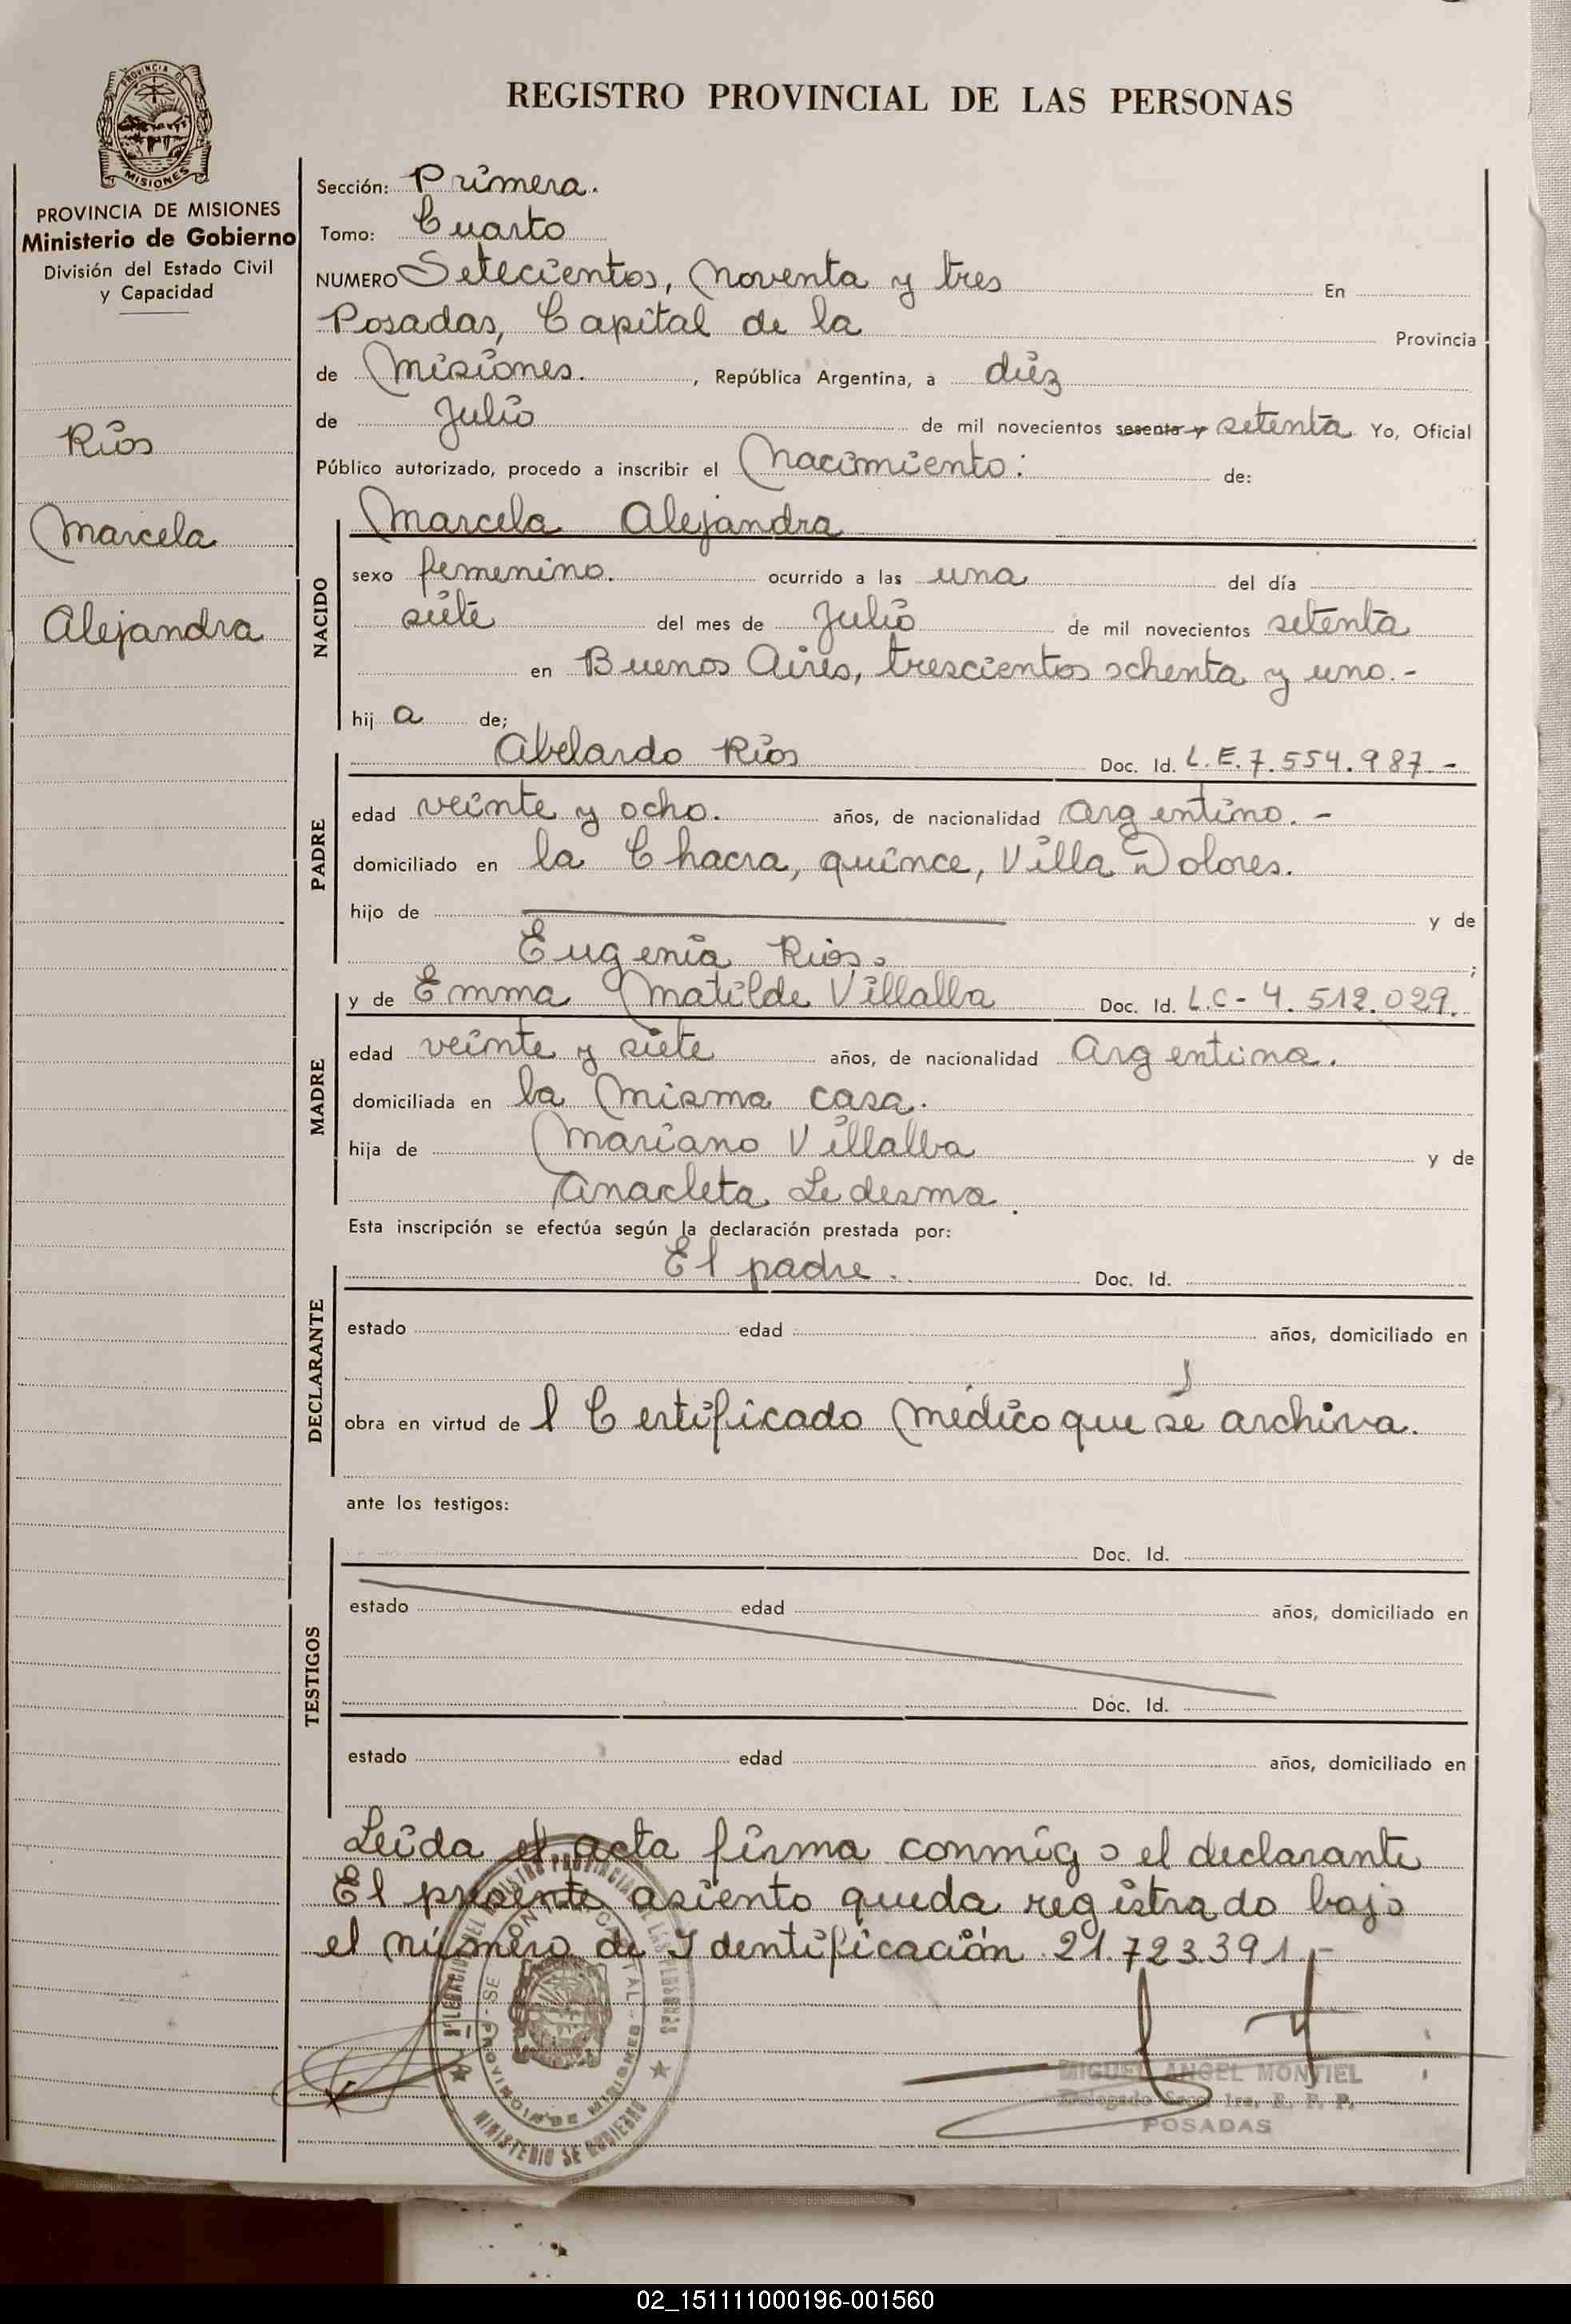 REGISTRO PROVINCIAL DE LAS PERSONAS
MISIONES
PROVINCIA DE MISIONES
Ministerio de Gobierno
División del Estado Civil
y Capacidad
Ríos
Marcela
Alejandra
Sección: Primera.
Tomo: Cuarto
NUMERO Setecientos, Noventa y tres En
Posadas, Capital de la Provincia
de Misiones. , República Argentina, a diéz
de Julio de mil novecientos sesenta y setenta Yo, Oficial
Público autorizado, procedo a inscribir el Nacimiento: de:
Marcela Alejandra
NACIDO
sexo femenino. ocurrido a las una del día
siete del mes de Julio de mil novecientos setenta
en Buenos Aires, trescientos ochenta y uno.-
hij a de;
PADRE
Abelardo Ríos Doc. Id. L.E.7.554.987.-
edad veinte y ocho. años, de nacionalidad Argentino.-
domiciliado en la Chacra, quince, Villa Dolores.
hijo de y de
Eugenia Rios. ;
MADRE
y de Emma Matilde Villalba Doc. Id. L.C-4.512.029.
edad veinte y siete años, de nacionalidad Argentina.
domiciliada en la misma casa.
hija de Mariano Villalba y de
Anacleta Ledesma.
Esta inscripción se efectúa según la declaración prestada por:
DECLARANTE
El padre. Doc. Id.
estado edad años, domiciliado en
obra en virtud de l Certificado Médico que se archiva.
ante los testigos:
TESTIGOS
Doc. Id.
estado edad años, domiciliado en
Doc. Id.
estado edad años, domiciliado en
Leída el acta firma conmigo el declarante
El presente asiento queda registrado bajo
el número de Identificación 21.723.391.-
MINISTERIO DE GOBIERNO
PROVINCIA DE MISIONES
MIGUEL ANGEL MONTIEL
Delegado Secc. 1ra. R. P. P.
POSADAS
02_151111000196-001560